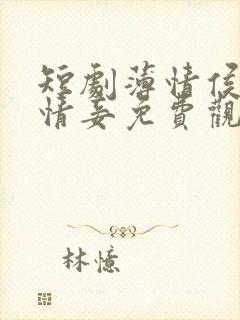 短劇薄情侯
情妾免費觀
林憶